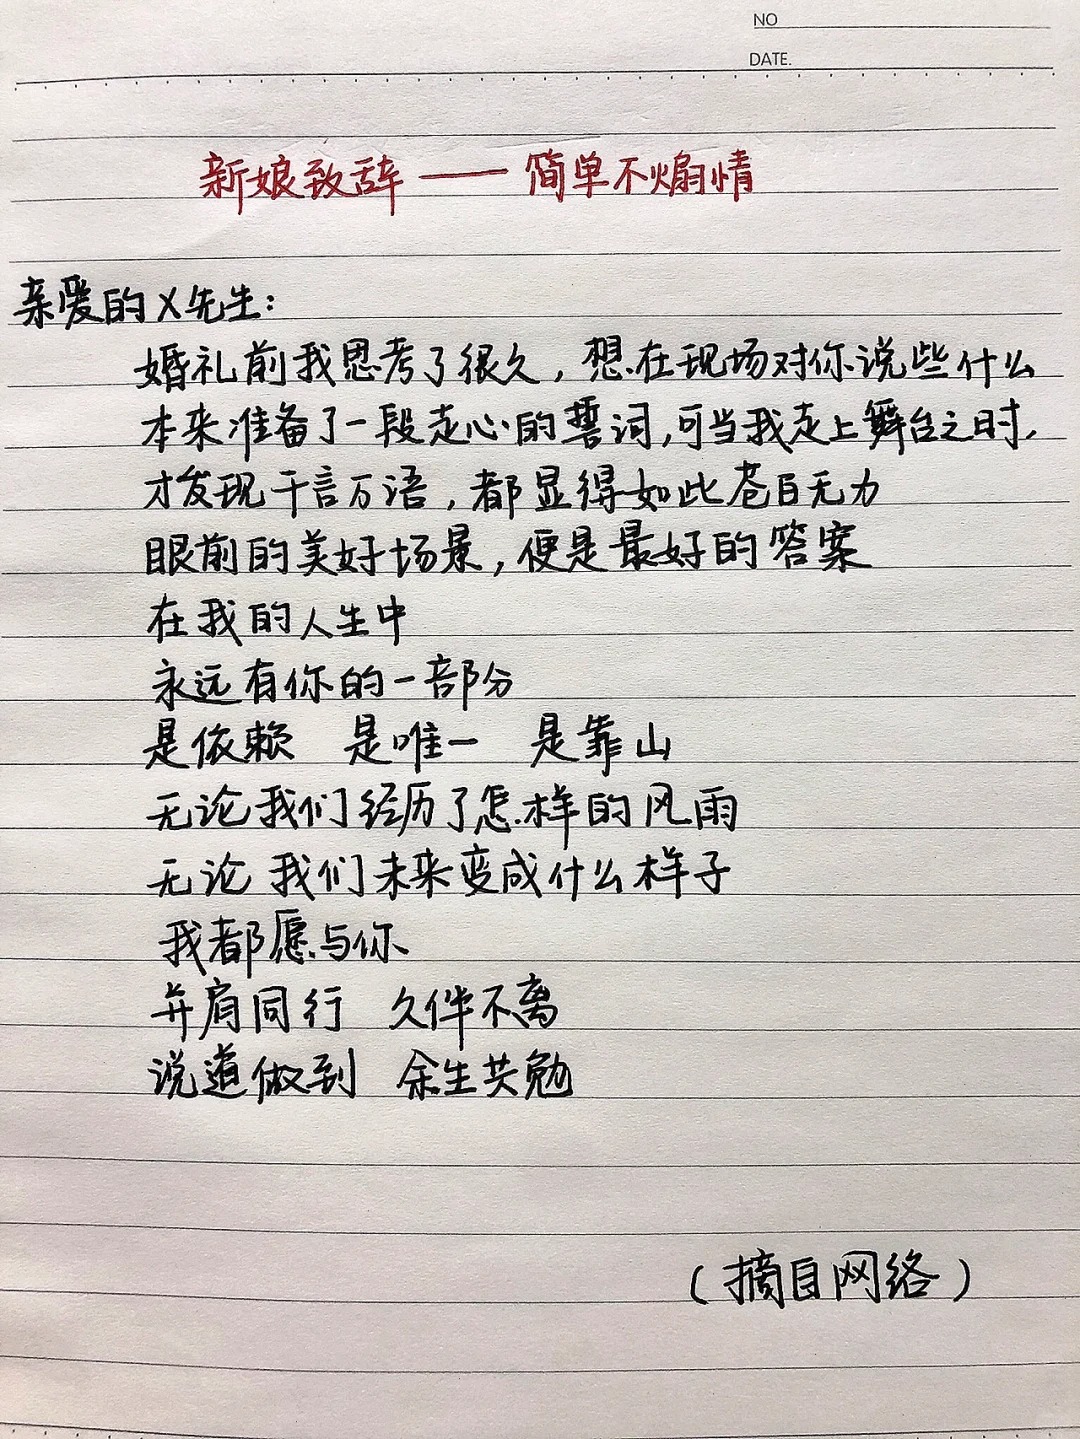 NO
DATE.
新娘致辞——简单不煽情
亲爱的X先生:
婚礼前我思考了很久,想在现场对你说些什么
本来准备了一段走心的誓词,可当我走上舞台之时,
才发现千言万语,都显得如此苍白无力
眼前的美好场景,便是最好的答案
在我的人生中
永远有你的一部分
是依赖 是唯一 是靠山
无论我们经历了怎样的风雨
无论我们未来变成什么样子
我都愿与你
并肩同行 久伴不离
说道做到 余生共勉
(摘目网络)